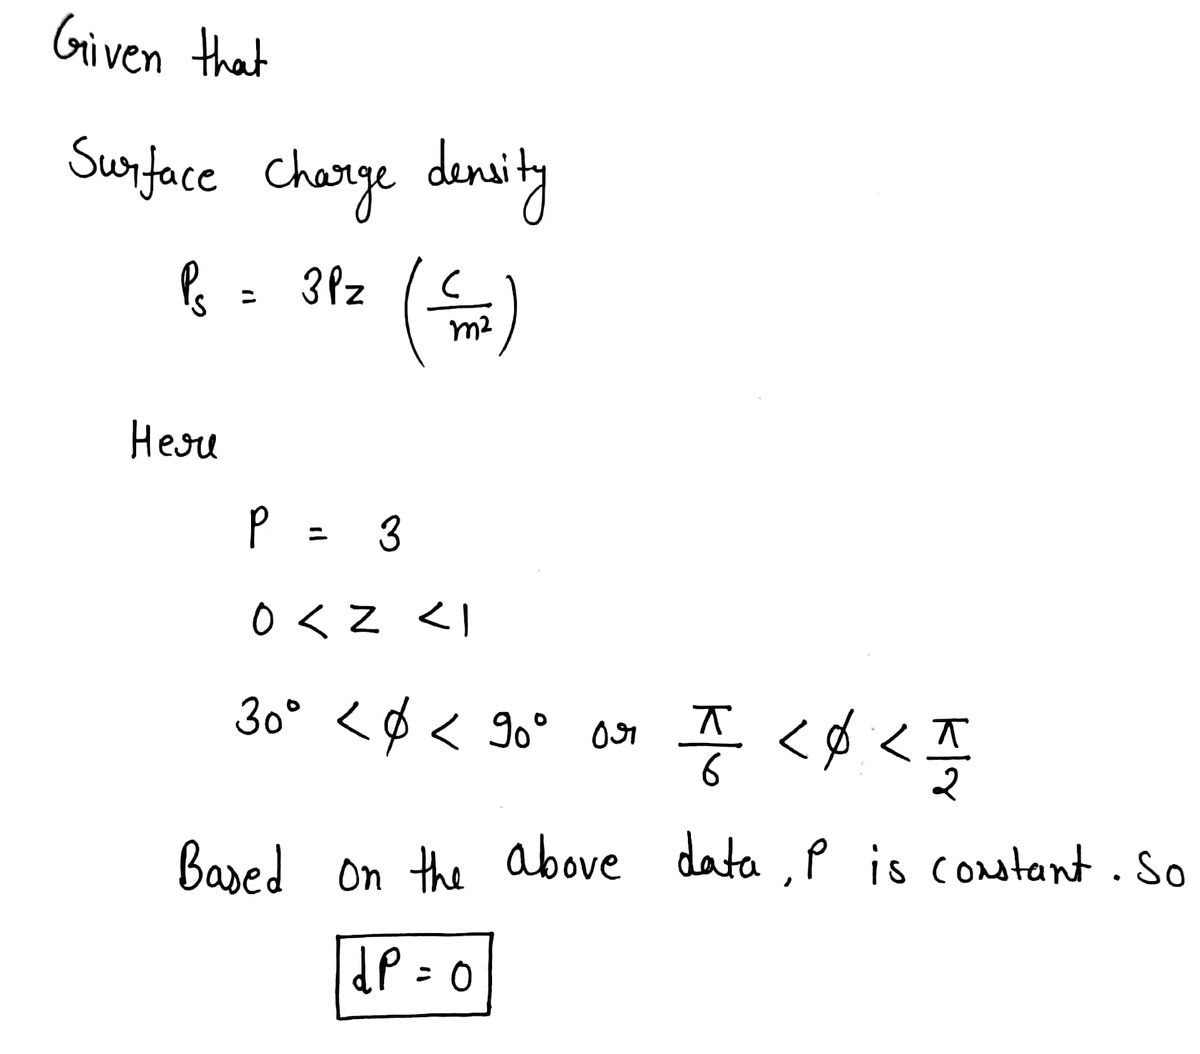 Given that
Surface charge density
ρs = 3ρz (C/m²)
Here
ρ = 3
0 < z < 1
30° < ϕ < 90° or π/6 < ϕ < π/2
Based on the above data, ρ is constant. So
dρ = 0